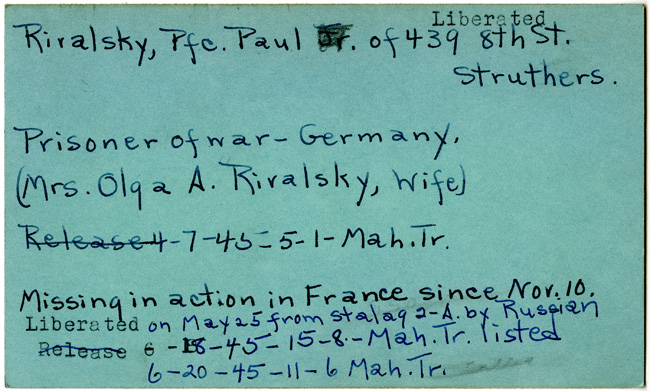 Liberated
Rivalsky, Pfc. Paul Jr. of 439 8th St.
Struthers.
Prisoner of war - Germany.
(Mrs. Olga A. Rivalsky, Wife)
Release 4-7-45-5-1-Mah.Tr.
Missing in action in France since Nov. 10.
Liberated on May 25 from Stalag 2-A. by Russian
Release 6-18-45-15-8-Mah.Tr. listed
6-20-45-11-6 Mah.Tr.